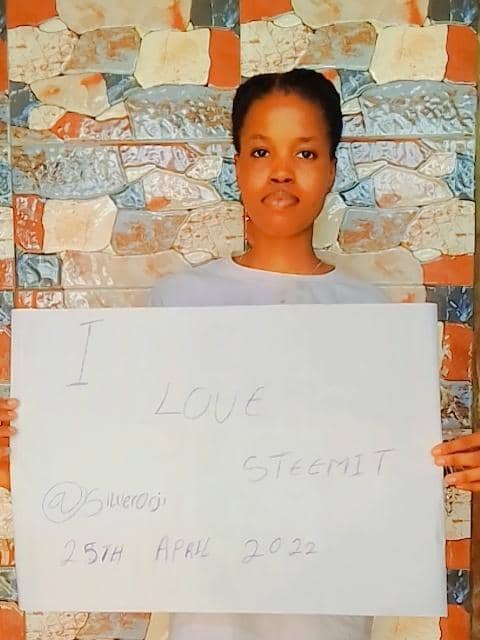 I
LOVE
STEEMIT
@Silverorji
25TH APRIL 2022